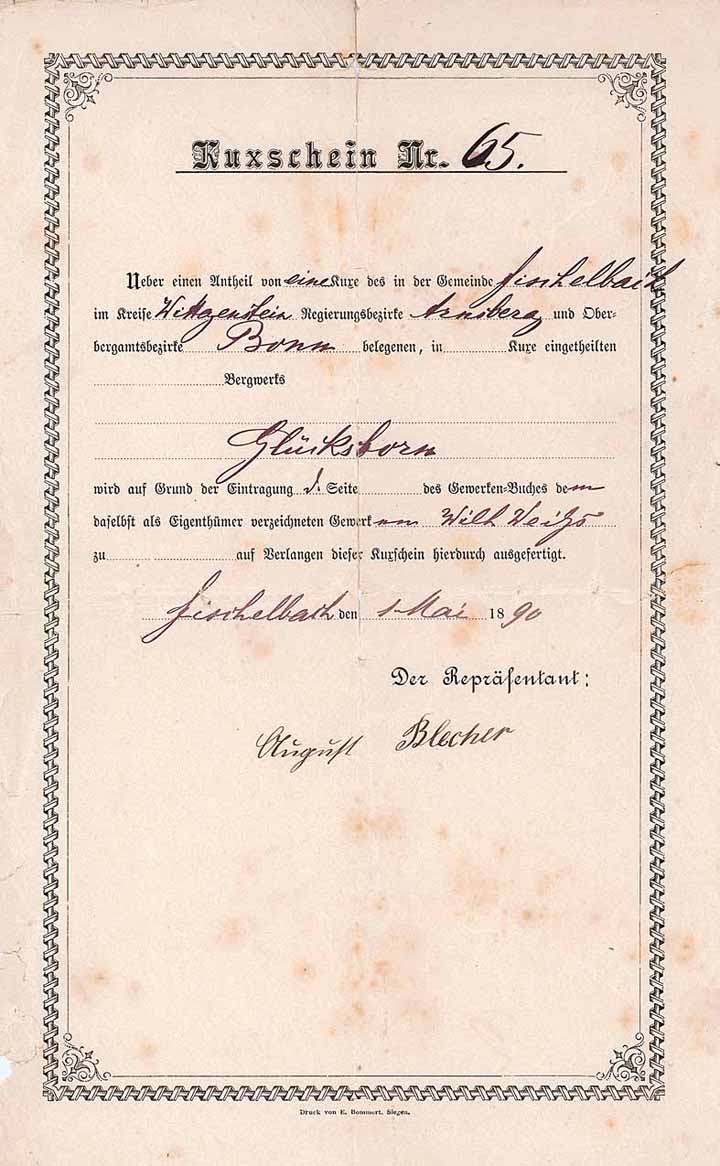 Kuxschein Nr. 65.
Ueber einen Antheil von eine Kuxe des in der Gemeinde Fischelbach
im Kreise Wittgenstein Regierungsbezirke Arnsberg und Ober-
bergamtsbezirke Bonn belegenen, in Kuxe eingetheilten
Bergwerks
Glücksborn
wird auf Grund der Eintragung d. Seite des Gewerken-Buches dem
daselbst als Eigenthümer verzeichneten Gewerken Wilh
zu auf Verlangen dieser Kuxschein hierdurch ausgefertigt.
Fischelbach den 1 Mai 1890
Der Repräsentant:
August Blecher
Druck von E. Bommert, Siegen.